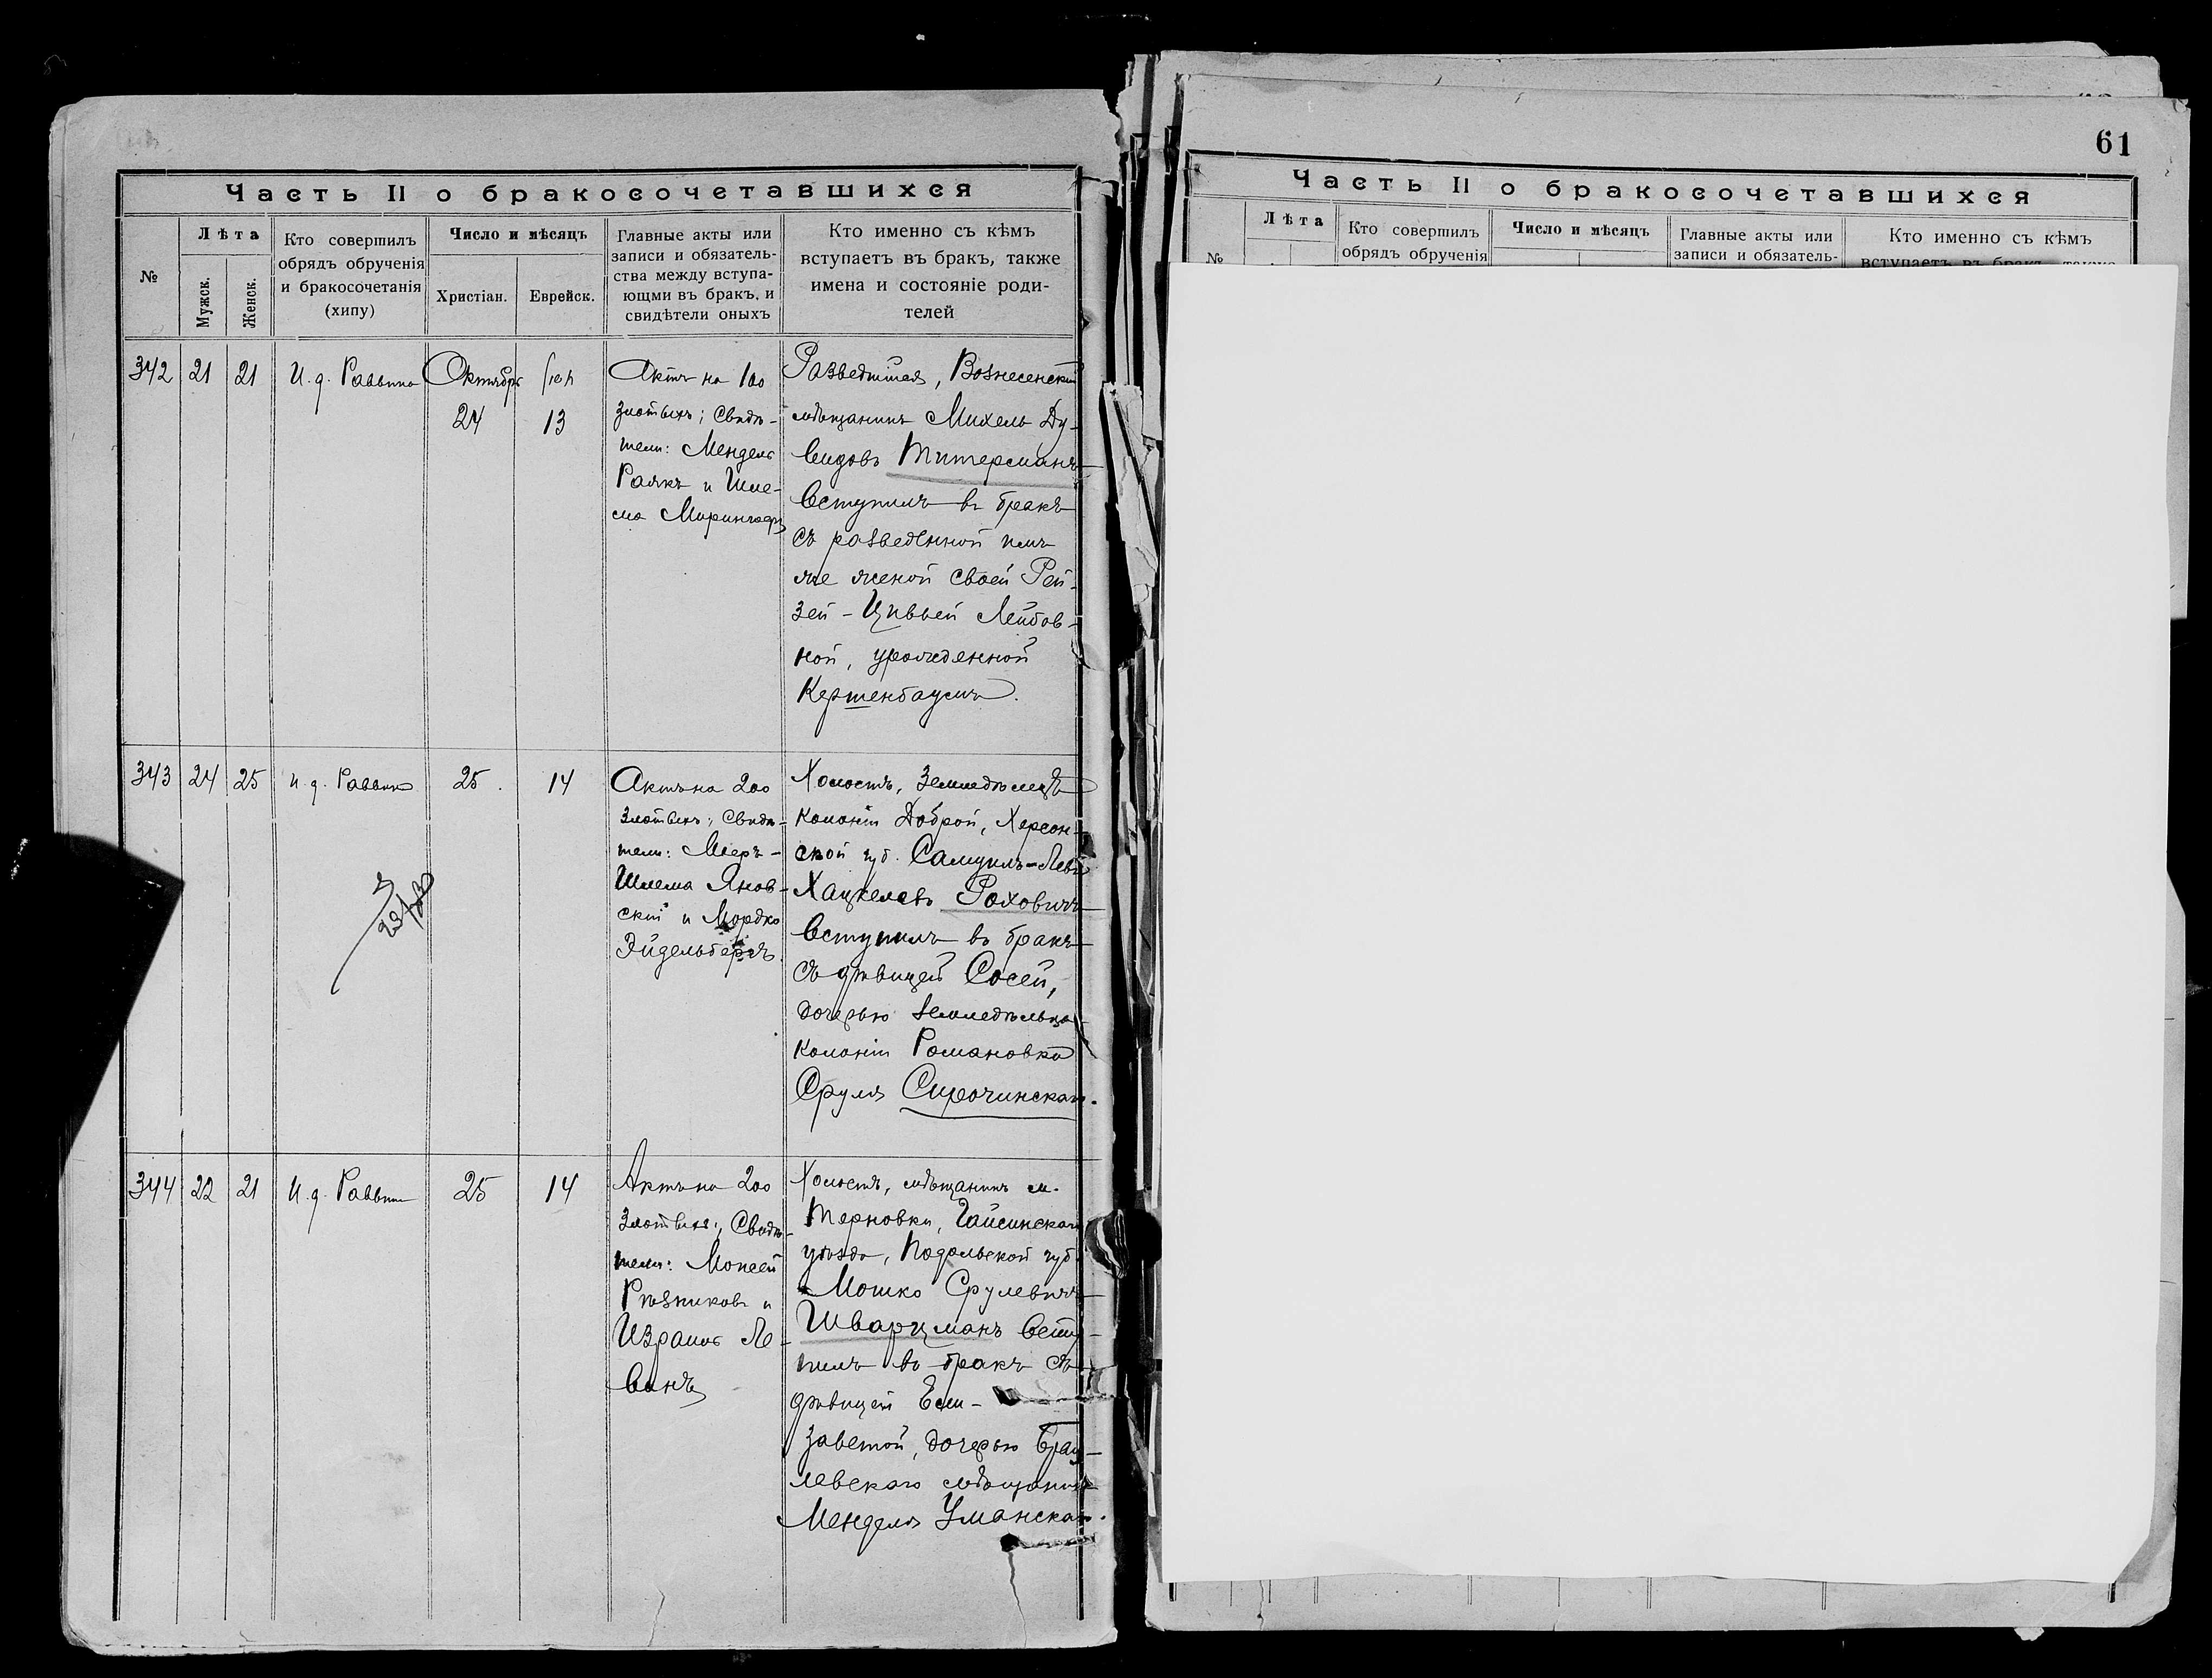 61
Часть II о бракосочетавшихся
№
Лѣта
Мужск.
Женск.
Кто совершилъ
обрядъ обрученія
и бракосочетанія
(хипу)
Число и мѣсяцъ
Христіан.
Еврейск.
Главные акты или
записи и обязатель-
ства между вступа-
ющми въ бракъ, и
свидѣтели оныхъ
Кто именно съ кѣмъ
вступаетъ въ бракъ, также
имена и состояніе роди-
телей
342
21
21
И. д. Раввина
Октября
24
13
Актъ на 100
злотыхъ; Свидѣ-
тели: Мендель
Раякъ и Шле-
ма
Разведшійся, Вознесенскій
мѣщанинъ Михель Ду-
видовъ Титерманъ
вступилъ въ бракъ
съ разведенной имъ
же женой своей Рей-
зей-Цивьей Лейбов-
ной, урожденной
Кершенбаумъ.
343
24
25
И. д. Раввина
25
14
Актъ на 200
злотыхъ; Свидѣ-
тели: Мееръ-
Шлема Янов-
скій и Мордко
Эйдельбергъ.
Холостъ, земледѣлецъ
колоніи Доброй, Херсон-
ской губ. Самуилъ-Лейб
Хацкелевъ Роховичъ
вступилъ въ бракъ
съ дѣвицей Сосей,
дочерью земледѣльца
колоніи Романовка
Сруля Сирочинскаго.
344
22
21
И. д. Раввина
25
14
Актъ на 200
злотыхъ; Свидѣ-
тели: Моисей
Рѣзниковъ и
Израиль Ле-
винъ
Холостъ, мѣщанинъ м.
Терновки, Гайсинскаго
уѣзда, Подольской губ.
Мошко Срулевичъ
Шварцманъ всту-
пилъ въ бракъ съ
дѣвицей Ели-
заветой, дочерью Брац-
лавскаго мѣщанина
Менделя Уманскаго.
Часть II о бракосочетавшихся
№
Лѣта
Кто совершилъ
обрядъ обрученія
Число и мѣсяцъ
Главные акты или
записи и обязатель-
Кто именно съ кѣмъ
вступаетъ въ бракъ, также